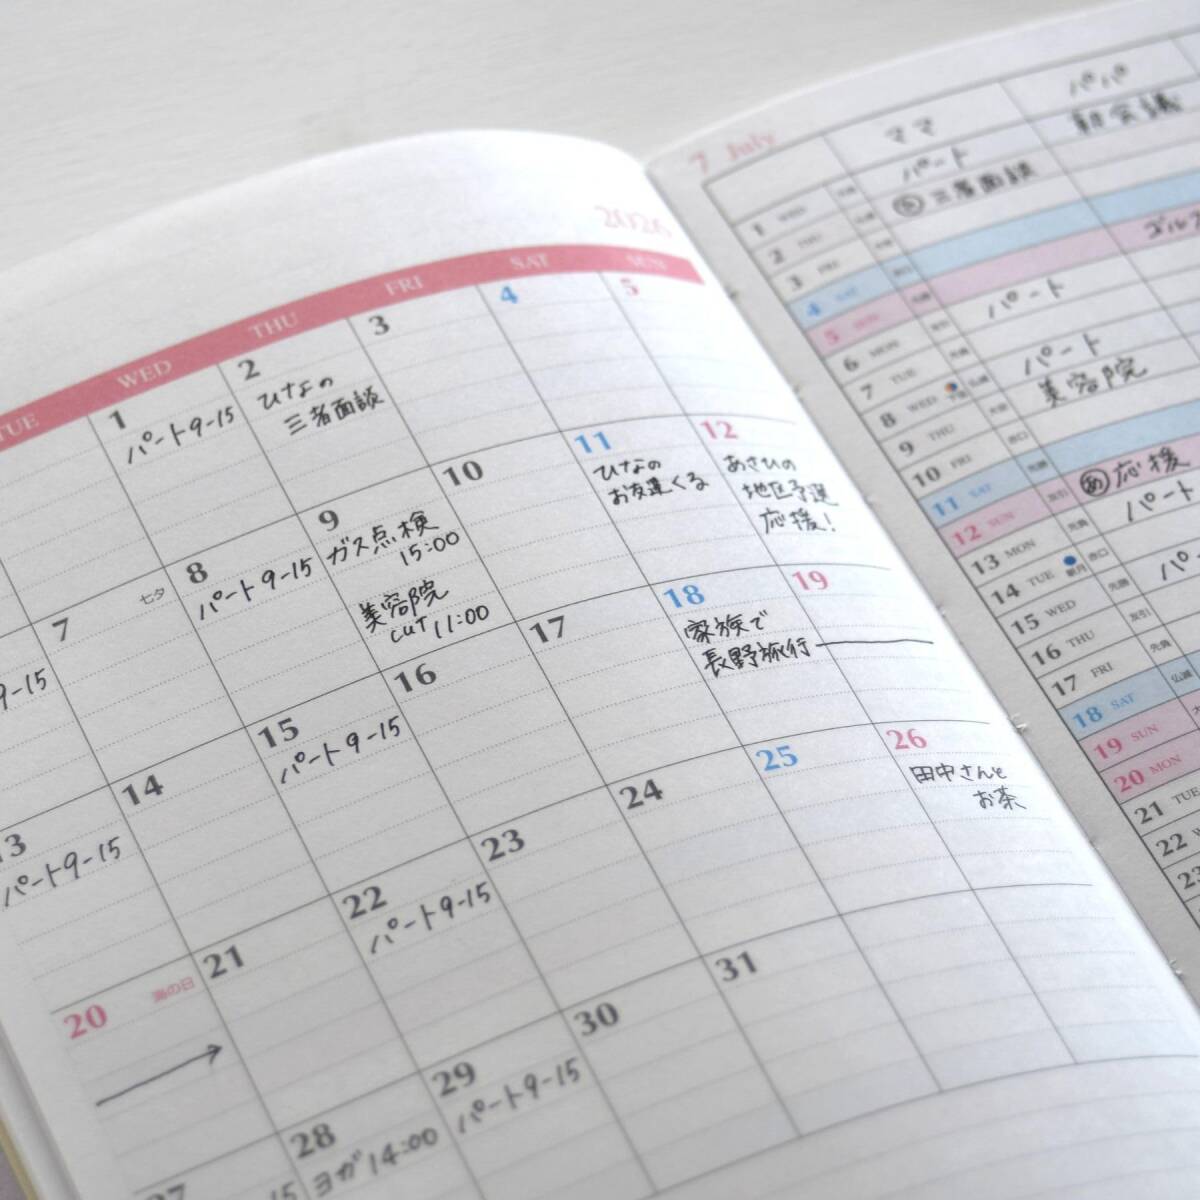 2026
TUE WED THU FRI SAT SUN
1
パート9-15
2
ひなの
三者面談
3
4
5
9-15
7 七夕
8
パート9-15
9
ガス点検
15:00
美容院
cut 11:00
10
11
ひなの
お友達くる
12
あさひの
地区予選
応援!
13
パート9-15
14
15
パート9-15
16
17
18
家族で
長野旅行
19
20 海の日
21
22
パート9-15
23
24
25
26
田中さんと
お茶
27
15
28
ヨガ14:00
29
パート9-15
30
31
7 July
ママ パパ
1 WED パート 朝会議
2 THU ひ 三者面談
3 FRI
4 SAT
5 SUN ゴルフ
6 MON パート
7 TUE
8 WED パート
9 THU 美容院
10 FRI
11 SAT
12 SUN あ 応援
13 MON 先負 パート
14 TUE 新月 赤口
15 WED 先勝 パ
16 THU 友引
17 FRI 先負
18 SAT 仏滅
19 SUN
20 MON
21 TUE
22
23